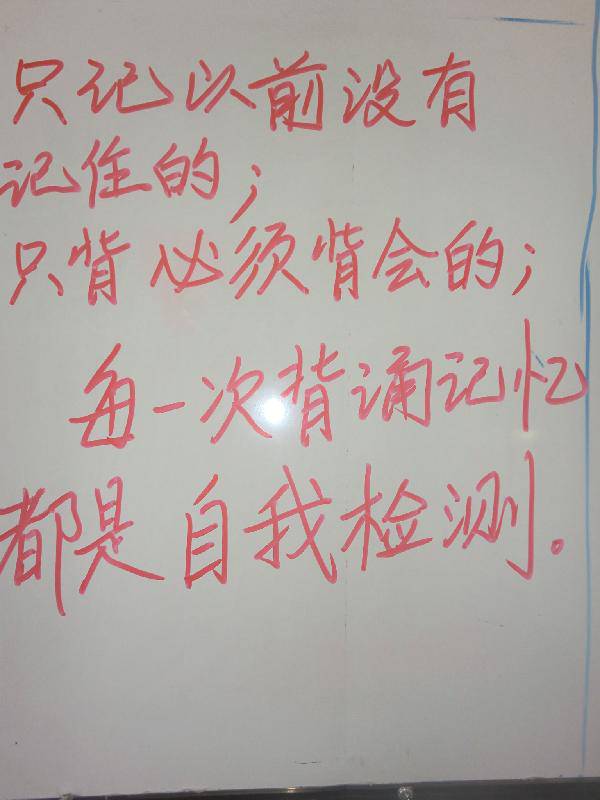 只记以前没有
记住的;
只背必须背会的;
每一次背诵记忆
都是自我检测。